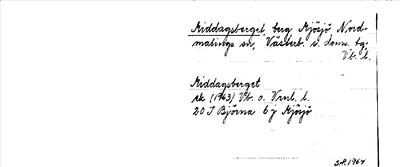 Middagsberget, berg Mjösjö Nord-
malings sn, Västerb. s. doms. tg.
Vb. l.
Middagsberget
rk (1963) Vb. o. Vrnl. l.
20 J Björna 6 j Mjösjö
S.P. 1964